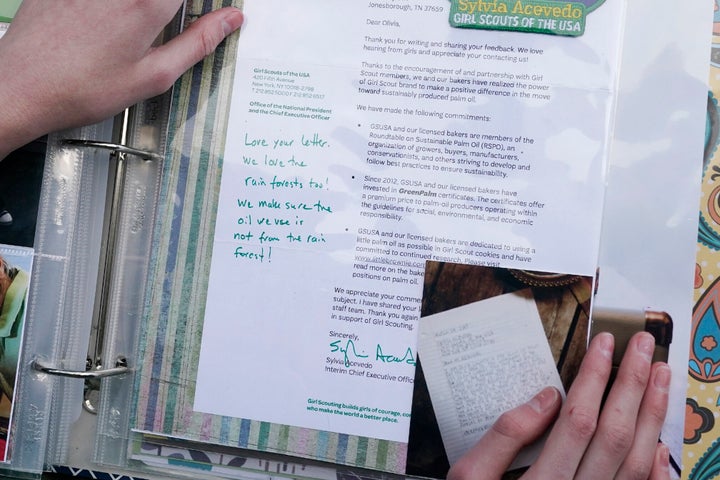 Sylvia Acevedo
GIRL SCOUTS OF THE USA
Jonesborough, TN 37659
Dear Olivia,
Thank you for writing and sharing your feedback. We love
hearing from girls and appreciate your contacting us!
Thanks to the encouragement of and partnership with Girl
Scout members, we and our bakers have realized the power
of Girl Scout brand to make a positive difference in the move
toward sustainably produced palm oil.
We have made the following commitments:
• GSUSA and our licensed bakers are members of the
Roundtable on Sustainable Palm Oil (RSPO), an
organization of growers, buyers, manufacturers,
conservationists, and others striving to develop and
follow best practices to ensure sustainability.
• Since 2012, GSUSA and our licensed bakers have
invested in GreenPalm certificates. The certificates offer
a premium price to palm-oil producers operating within
the guidelines for social, environmental, and economic
responsibility.
• GSUSA and our licensed bakers are dedicated to using a
little palm oil as possible in Girl Scout cookies and have
committed to continued research. Please visit
www.littlebrownie
read more on the bake
positions on palm oil.
We appreciate your comme
subject. I have shared your
staff team. Thank you again
in support of Girl Scouting.
Sincerely,
Sylvia Acevedo
Sylvia Acevedo
Interim Chief Executive Officer
Girl Scouting builds girls of courage, con
who make the world a better place.
Girl Scouts of the USA
420 Fifth Avenue
New York, NY 10018-2798
Office of the National President
and the Chief Executive Officer
Love your letter.
We love the
rain forests too!
We make sure the
oil we use is
not from the rain
forest!